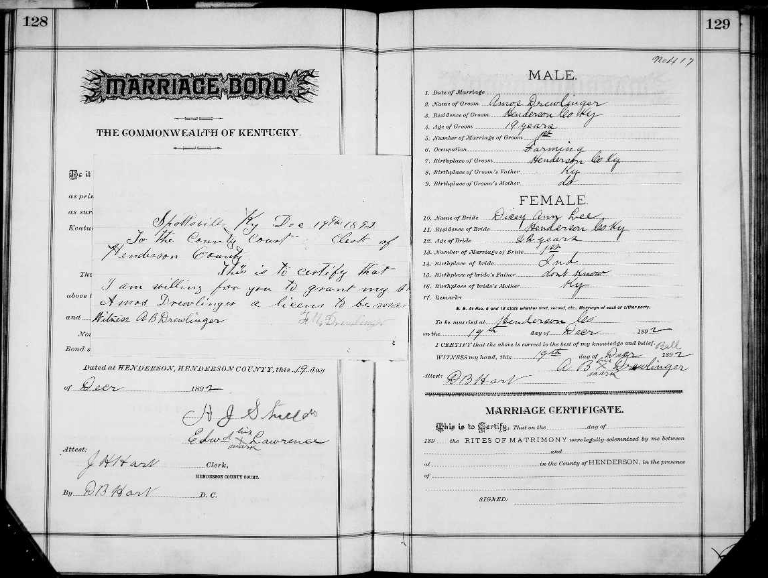 128
MARRIAGE BOND.
THE COMMONWEALTH OF KENTUCKY.
Be it
as prin
as sur
Kentu
Spottsvill Ky Dec 19th 1892
To the County Court Clerk of
Henderson County
This is to certify that
I am willing for you to grant my
Amos Drewlinger a licens to be
Witness A B Drewlinger
The
above
and
No
Bond s
Dated at HENDERSON, HENDERSON COUNTY, this 19 day
of Decr 1892
A J Shields
Edwd his x mark Lawrence
Attest:
J H Hart Clerk,
HENDERSON COUNTY COURT.
By D B Hart D. C.
129
No 417
MALE.
1. Date of Marriage
2. Name of Groom Amos Drewlinger
3. Residence of Groom Henderson Co Ky
4. Age of Groom 19 years
5. Number of Marriage of Groom 1st
6. Occupation Farming
7. Birthplace of Groom Henderson Co Ky
8. Birthplace of Groom's Father Ky
9. Birthplace of Groom's Mother do
FEMALE.
10. Name of Bride Dicey Ann Lee
11. Residence of Bride Henderson Co Ky
12. Age of Bride 26 years
13. Number of Marriage of Bride 1st
14. Birthplace of Bride Ind
15. Birthplace of Bride's Father dont know
16. Birthplace of Bride's Mother Ky
17. Remarks
To be married at Henderson Co
on the 19th day of Decr 1892
I CERTIFY that the above is correct to the best of my knowledge and belief.
WITNESS my hand, this 19th day of Decr 1892
A B his x mark Drewlinger
Attest: D B Hart
MARRIAGE CERTIFICATE.
This is to Certify, That on the day of
189 the RITES OF MATRIMONY were legally solemnized by me between
and
at in the County of HENDERSON, in the presence
of
SIGNED: